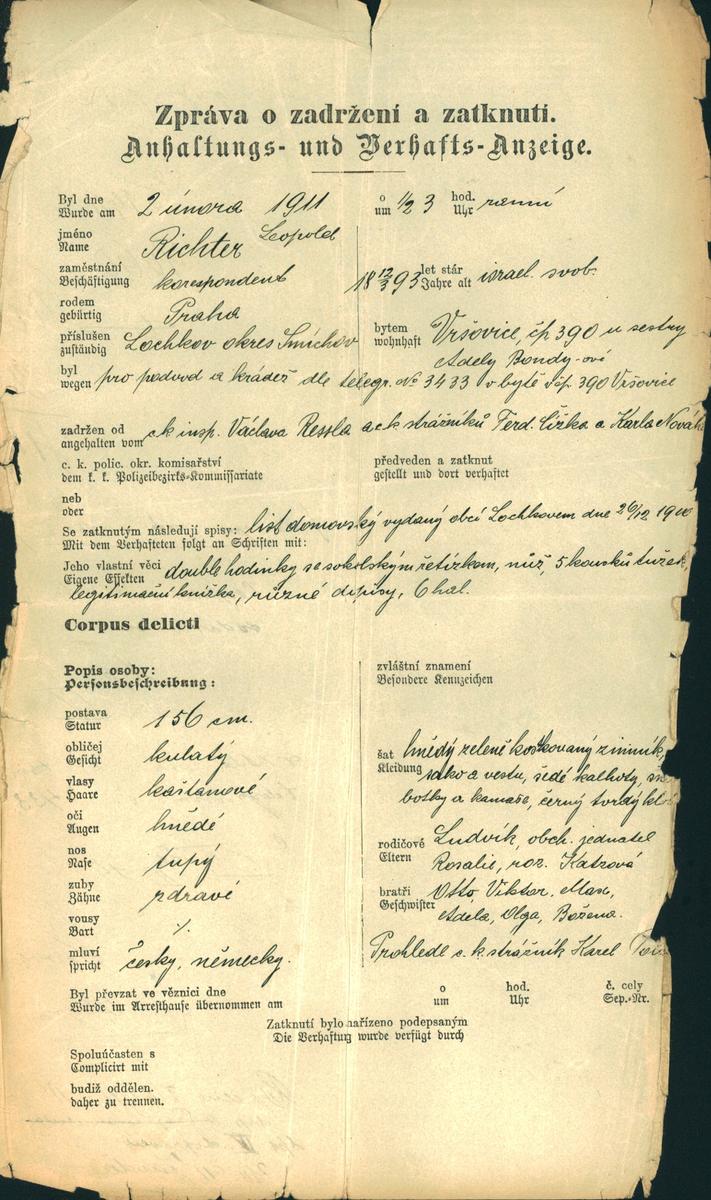 Zpráva o zadržení a zatknutí.
Anhaltungs- und Verhafts-Anzeige.
Byl dne 2 února 1911 o 1/2 3 hod. ranní
Wurde am um Uhr
jméno Richter Leopold
Name
zaměstnání korespondent 18 12/3 93 let stár israel. svob.
Beschäftigung Jahre alt
rodem Praha
gebürtig
příslušen Lochkov okres Smíchov bytem Vršovice, čp 390 u sestry
zuständig wohnhaft Adely Bondy-ové
byl pro podvod a krádež dle telegr. No 3433 v bytě čp. 390 Vršovice
wegen
zadržen od ck insp. Václava Ressla a ck strážníků Ferd. Čížka a Karla Nováka
angehalten vom
c. k. polic. okr. komisařství předveden a zatknut
dem k. k. Polizeibezirks-Kommissariate gestellt und dort verhaftet
neb
oder
Se zatknutým následují spisy: list domovský vydaný obcí Lochkovem dne 26/12 1910
Mit dem Verhafteten folgt an Schriften mit:
Jeho vlastní věci double hodinky se sokolským řetízkem, nůž, 5 kousků tužek,
Eigene Effekten legitimační knížka, různé dopisy, 6 hal.
Corpus delicti
Popis osoby: zvláštní znamení
Personsbeschreibung: Besondere Kennzeichen
postava 156 cm.
Statur
obličej kulatý šat hnědý zeleně kostkovaný zimník,
Gesicht Kleidung sako a vestu, šedé kalhoty,
vlasy kaštanové botky a kamaše, černý tvrdý
Haare
oči hnědé rodičové Ludvík, obch. jednatel
Augen Eltern Rosalie, roz. Katzová
nos tupý
Nase
zuby zdravé bratři Otto, Viktor, Max,
Zähne Geschwister Adéla, Olga, Božena.
vousy ·/.
Bart
mluví česky, německy. Prohledl c. k. strážník Karel
spricht
Byl převzat ve věznici dne o hod. č. cely
Wurde im Arresthause übernommen am um Uhr Sep.-Nr.
Zatknutí bylo nařízeno podepsaným
Die Verhaftung wurde verfügt durch
Spoluúčasten s
Complicirt mit
budiž oddělen.
daher zu trennen.